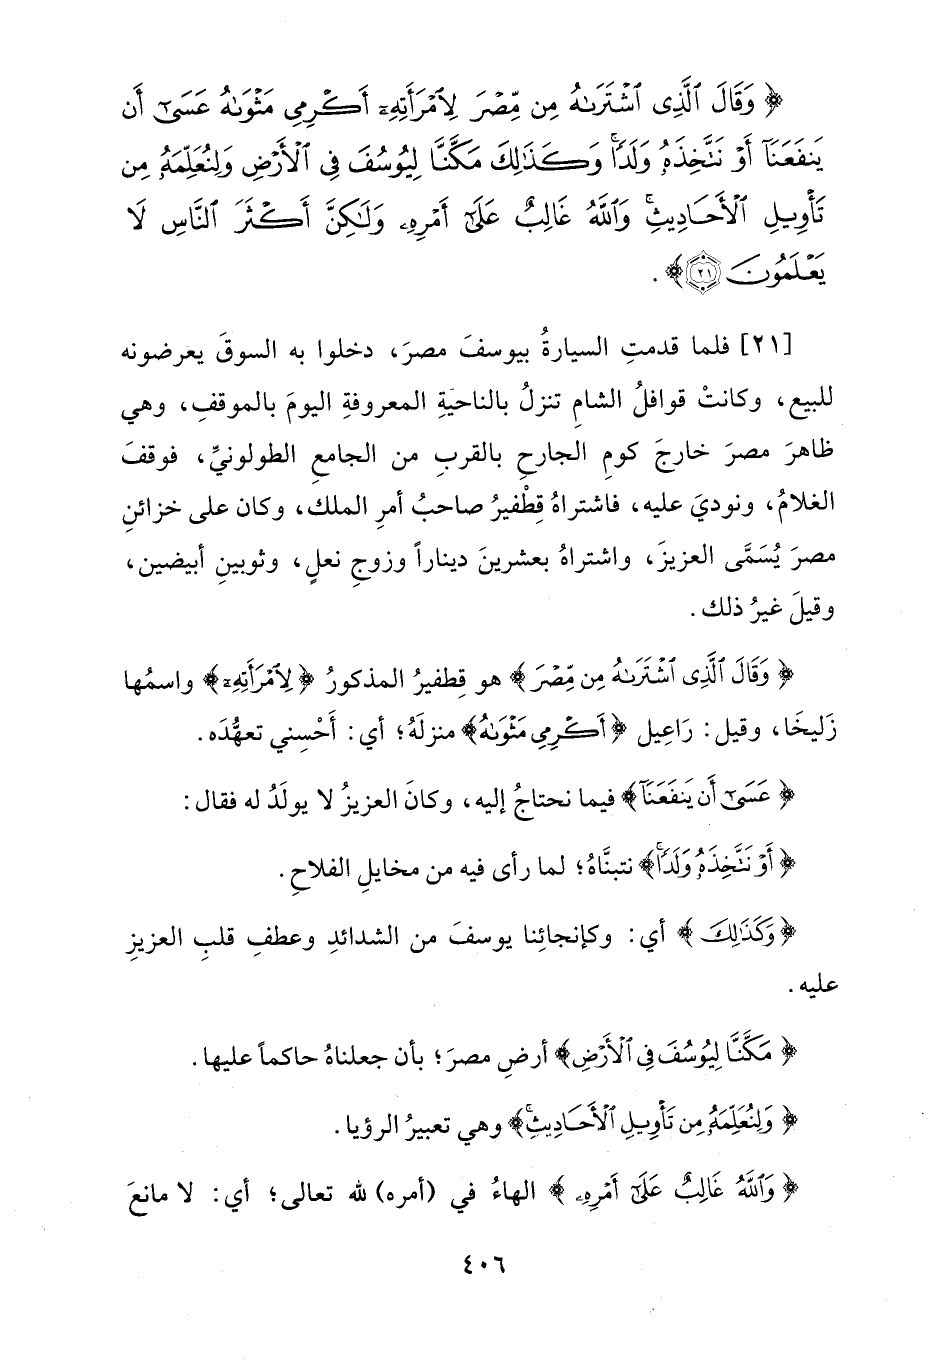 ﴿ وَقَالَ ٱلَّذِى ٱشْتَرَىٰهُ مِن مِّصْرَ لِٱمْرَأَتِهِۦٓ أَكْرِمِى مَثْوَىٰهُ عَسَىٰٓ أَن
يَنفَعَنَآ أَوْ نَتَّخِذَهُۥ وَلَدًا ۚ وَكَذَٰلِكَ مَكَّنَّا لِيُوسُفَ فِى ٱلْأَرْضِ وَلِنُعَلِّمَهُۥ مِن
تَأْوِيلِ ٱلْأَحَادِيثِ ۚ وَٱللَّهُ غَالِبٌ عَلَىٰٓ أَمْرِهِۦ وَلَٰكِنَّ أَكْثَرَ ٱلنَّاسِ لَا
يَعْلَمُونَ ﴿٢١﴾ ﴾ .
[٢١] فلما قدمتِ السيارةُ بيوسفَ مصرَ، دخلوا به السوقَ يعرضونه
للبيع، وكانتْ قوافلُ الشامِ تنزلُ بالناحيَةِ المعروفةِ اليومَ بالموقفِ، وهي
ظاهرَ مصرَ خارجَ كومِ الجارحِ بالقربِ من الجامعِ الطولونيِّ، فوقفَ
الغلامُ، ونوديَ عليه، فاشتراهُ قِطْفيرُ صاحبُ أمرِ الملك، وكان على خزائنِ
مصرَ يُسَمَّى العزيزَ، واشتراهُ بعشرينَ ديناراً وزوجِ نعلٍ، وثوبينِ أبيضين،
وقيلَ غيرُ ذلك.
﴿ وَقَالَ ٱلَّذِى ٱشْتَرَىٰهُ مِن مِّصْرَ ﴾ هو قِطفيرُ المذكورُ ﴿ لِٱمْرَأَتِهِۦٓ ﴾ واسمُها
زَليخَا، وقيل: رَاعِيل ﴿ أَكْرِمِى مَثْوَىٰهُ ﴾ منزلَهُ؛ أي: أَحْسِني تعهُّدَه.
﴿ عَسَىٰٓ أَن يَنفَعَنَآ ﴾ فيما نحتاجُ إليه، وكانَ العزيزُ لا يولَدُ له فقال:
﴿ أَوْ نَتَّخِذَهُۥ وَلَدًا ۚ ﴾ نتبنَّاهُ؛ لما رأى فيه من مخايلِ الفلاحِ.
﴿ وَكَذَٰلِكَ ﴾ أي: وكإنجائِنا يوسفَ من الشدائدِ وعطفِ قلبِ العزيزِ
عليه.
﴿ مَكَّنَّا لِيُوسُفَ فِى ٱلْأَرْضِ ﴾ أرضِ مصرَ؛ بأن جعلناهُ حاكماً عليها.
﴿ وَلِنُعَلِّمَهُۥ مِن تَأْوِيلِ ٱلْأَحَادِيثِ ۚ ﴾ وهي تعبيرُ الرؤيا.
﴿ وَٱللَّهُ غَالِبٌ عَلَىٰٓ أَمْرِهِۦ ﴾ الهاءُ في (أمره) لله تعالى؛ أي: لا مانعَ
٤٠٦